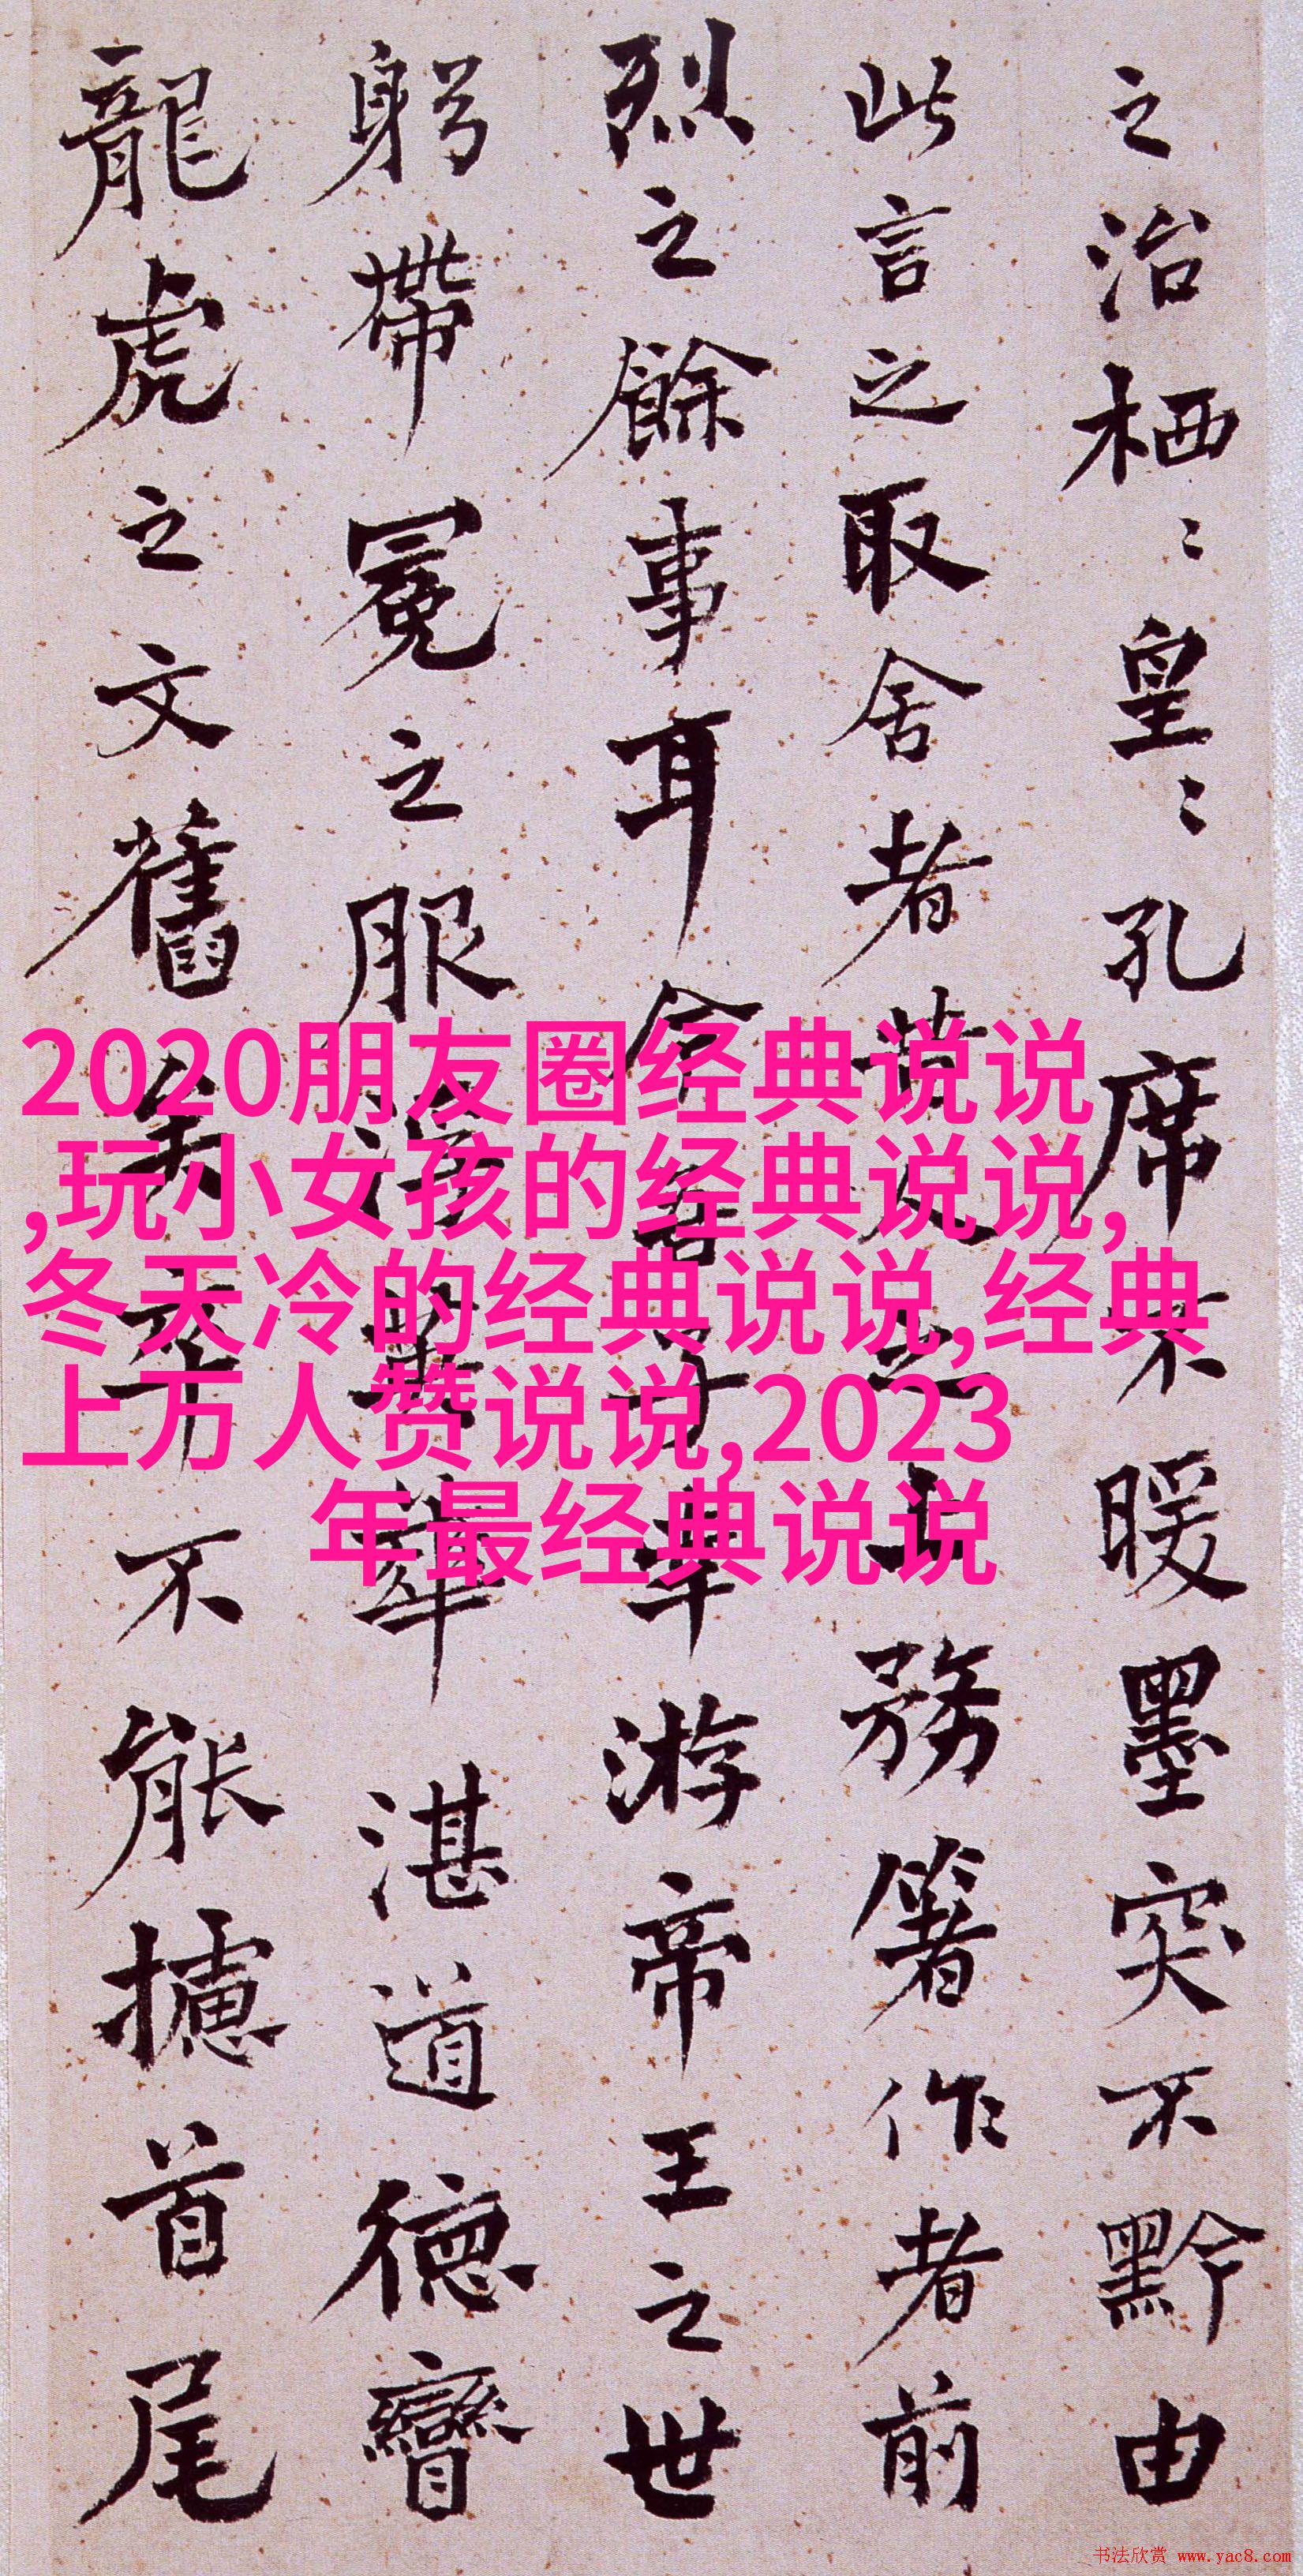 之治栖〻皇〻孔席不暖墨突不黔由
此言之取舍者昔人之上務箸作者前
烈之餘事耳今吾子幸游帝王之世
躬帶冕之服浮英華湛道德矕
龍虎之文舊矣卒不能攄首尾
2020朋友圈经典说说
,玩小女孩的经典说说,
冬天冷的经典说说,经典
上万人赞说说,2023
年最经典说说
书法欣赏 www.yac8.com